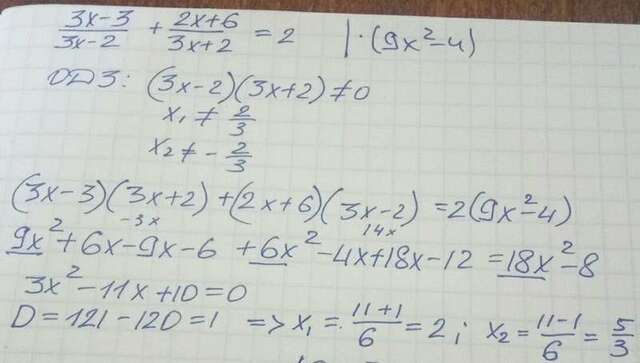 (3x-3)/(3x-2) + (2x+6)/(3x+2) = 2 | · (9x²-4)
ОДЗ: (3x-2)(3x+2) ≠ 0
x₁ ≠ 2/3
x₂ ≠ - 2/3
(3x-3)(3x+2)+(2x+6)(3x-2) = 2(9x²-4)
-3x 14x
9x²+6x-9x-6 +6x²-4x+18x-12 = 18x²-8
3x²-11x+10=0
D=121-120=1 => x₁ = (11+1)/6 = 2; x₂ = (11-1)/6 = 5/3